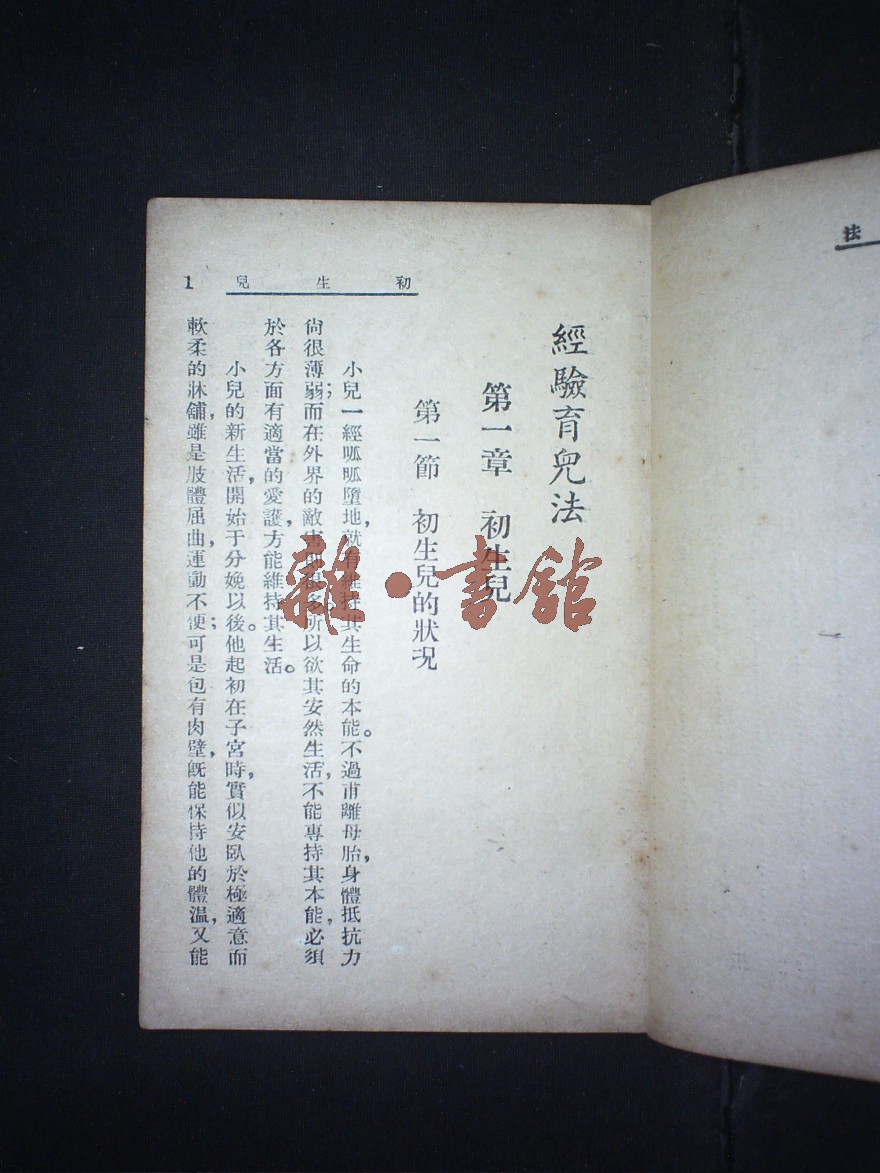 法
初生兒
1
經驗育兒法
第一章　初生兒
第一節　初生兒的狀況
小兒一經呱呱墮地,就有維持其生命的本能。不過甫離母胎,身體抵抗力
尙很薄弱;而在外界的敵害很多。所以欲其安然生活,不能專持其本能,必須
於各方面有適當的愛護,方能維持其生活。
小兒的新生活,開始于分娩以後。他起初在子宮時,實似安臥於極適意而
軟柔的牀舖,雖是肢體屈曲,運動不便;可是包有肉壁,旣能保持他的體溫,又能
雜·書館